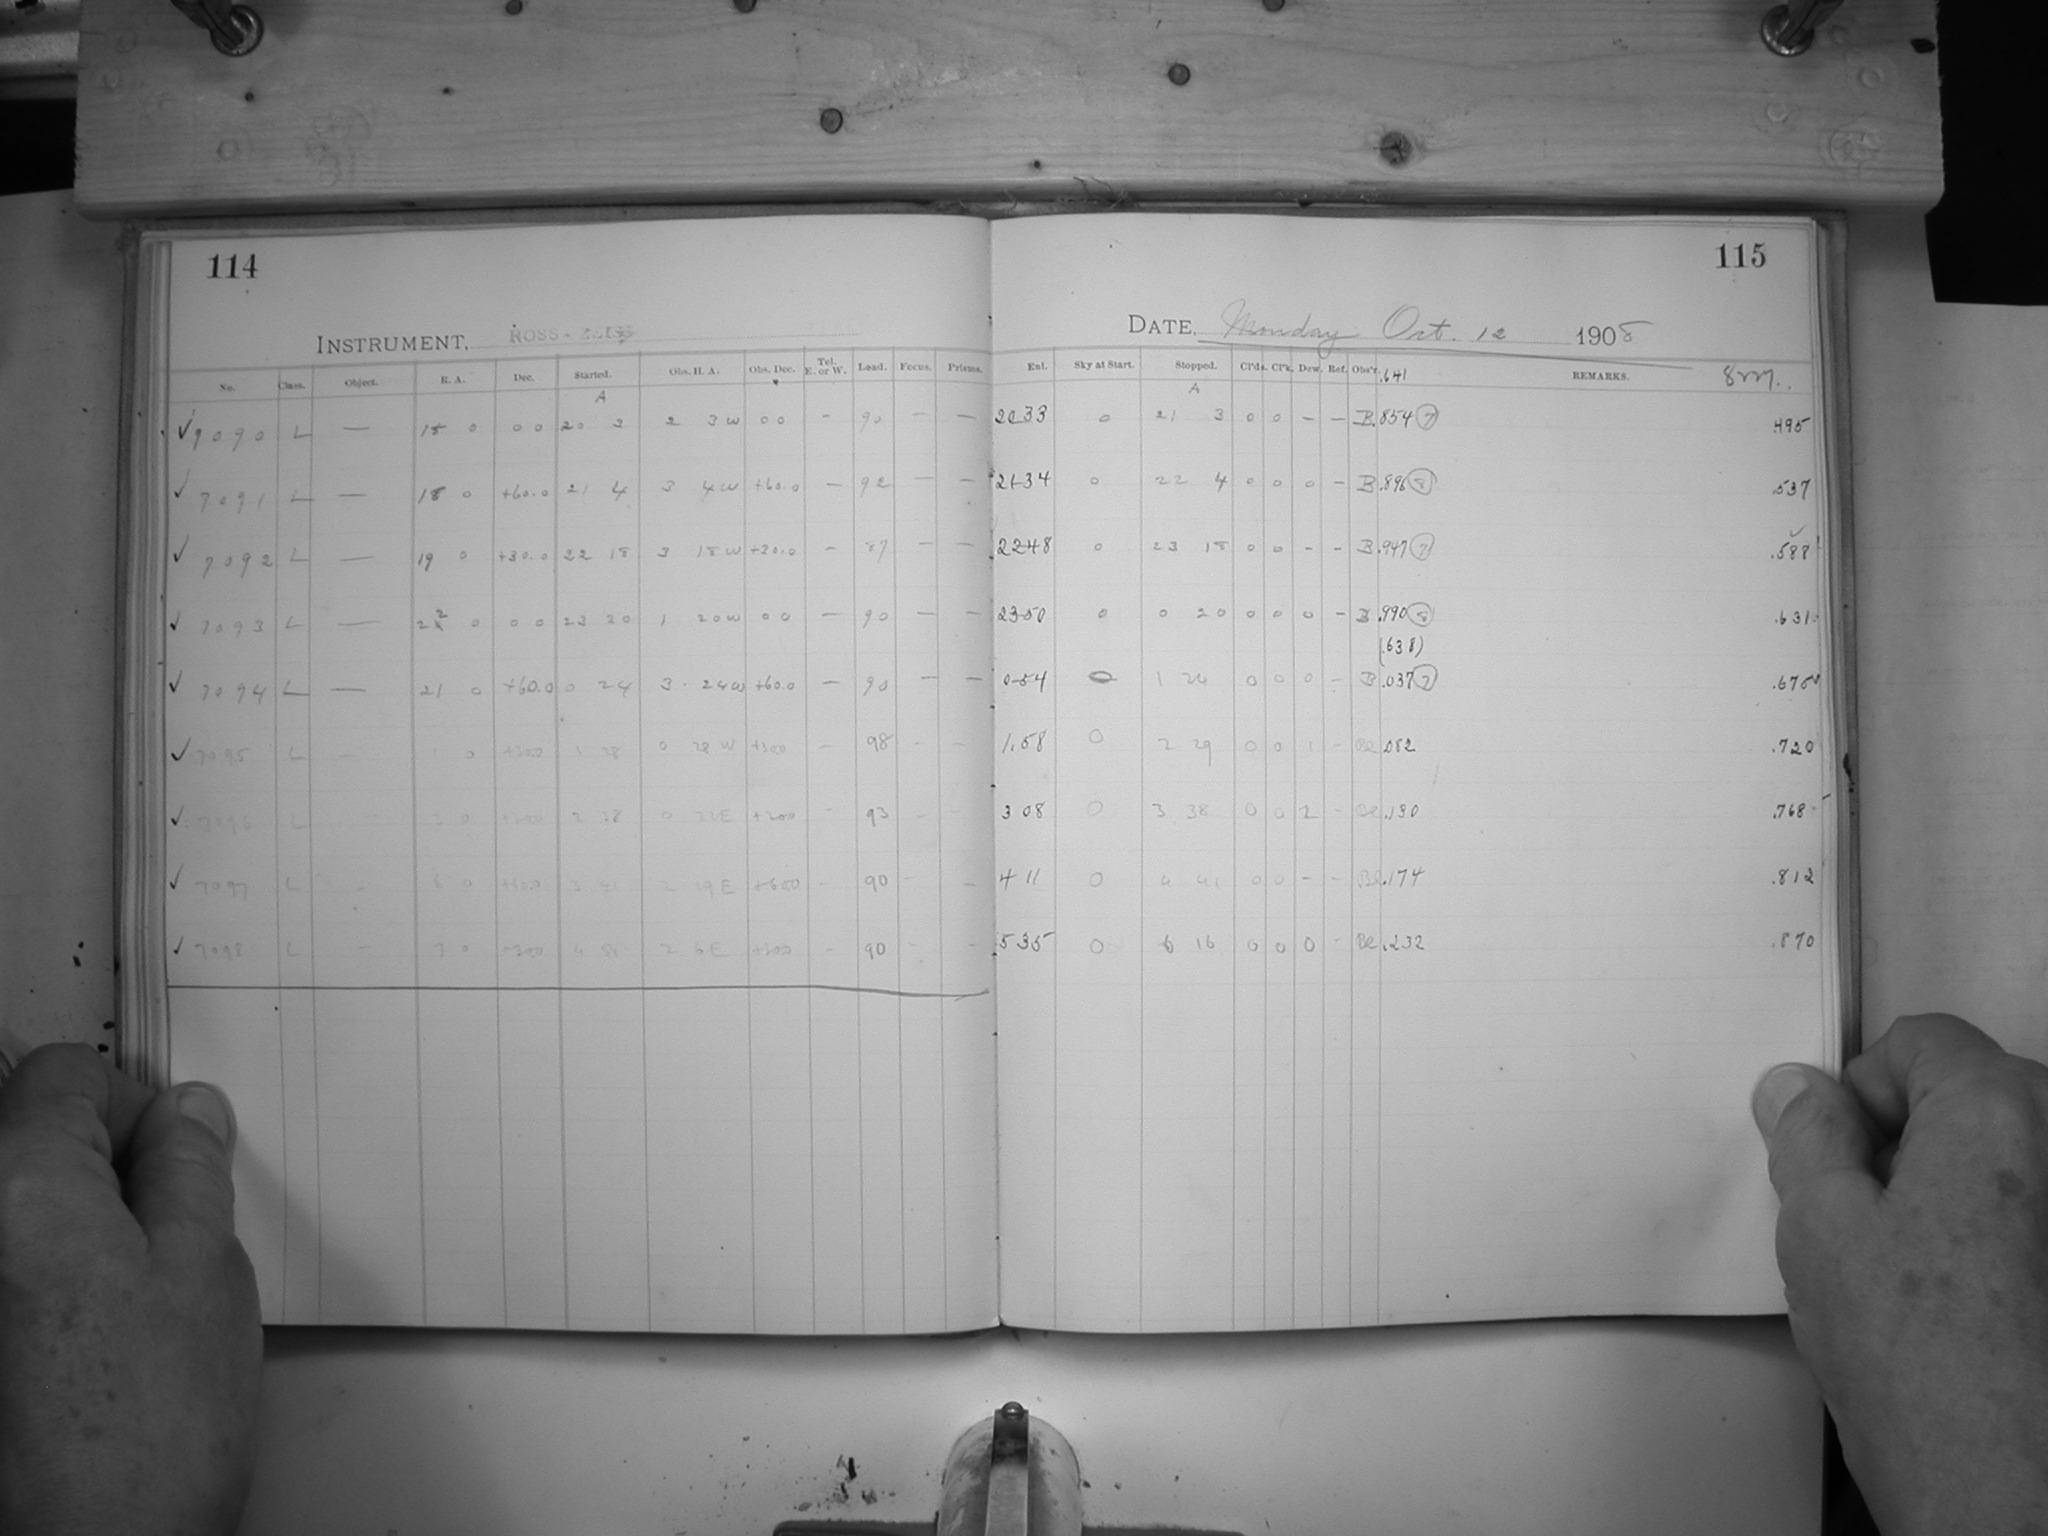 114
115
INSTRUMENT, ROSS-
DATE, Monday Oct. 12 1908
No. Class. Object. R. A. Dec. Started. Obs. H. A. Obs. Dec. Tel. E. or W. Lead. Focus. Prisms. Ent. Sky at Start. Stopped. Cl'ds. Cl'k. Dew. Ref. Obs'r. .641 REMARKS. 8m.
A A
✓ 7090 L — 18 0 0 0 20 3 2 3 W 0 0 - 90 - — 2033 0 21 3 0 0 - - B .854 (7) .495
✓ 7091 L — 18 0 +60.0 21 4 3 4 W +60.0 - 92 - - 2134 0 22 4 0 0 0 - B .896 (8) .537
✓ 7092 L — 19 0 +30.0 22 18 3 18 W +30.0 - 87 - - 2248 0 23 18 0 0 - - B .947 (7) .588
✓ 7093 L — 22 0 0 0 23 20 1 20 W 0 0 - 90 - - 2350 0 0 20 0 0 0 - B .990 (8) .631
(.638)
✓ 7094 L — 21 0 +60.0 0 24 3 24 W +60.0 - 90 - - 054 0 1 24 0 0 0 - B .037 (7) .675
✓ 7095 L - 1 0 +30.0 1 28 0 28 W +30.0 - 98 - - 1.58 0 2 29 0 0 1 - Be .082 .720
✓ 7096 L - 3 0 2 38 0 22 E - 93 - - 3 08 0 3 38 0 0 2 - Be .130 .768
✓ 7097 L - 6 0 +60.0 3 41 2 19 E +60.0 - 90 - - 4 11 0 4 41 0 0 - - Be .174 .812
✓ 7098 L - 7 0 +30.0 4 54 2 6 E +30.0 - 90 - - 535 0 6 16 0 0 0 - Be .232 .870